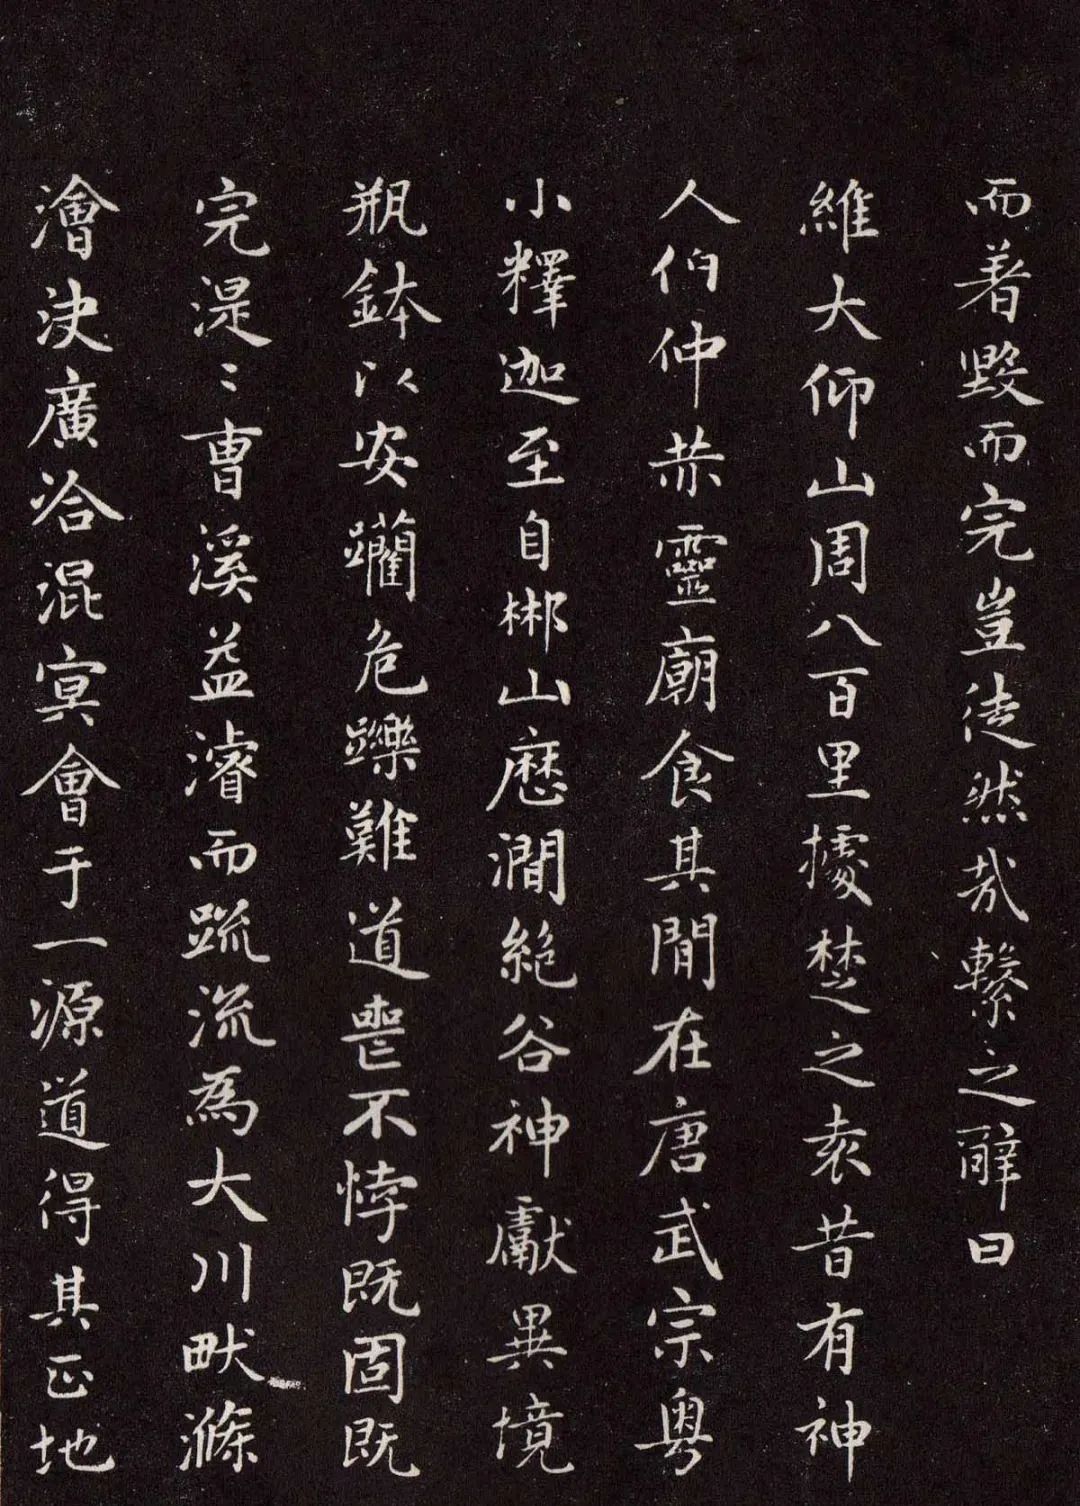 而著毀而完豈徒然哉繫之辭曰
維大仰山周八百里據楚之袁昔有神
人伯仲恭靈廟食其閒在唐武宗粵
小釋迦至自郴山歷澗絕谷神獻異境
瓶鉢以安躪危躒難道亨不悖既固既
完湜〻曹溪益濬而疏流為大川畎滌
澮決廣洽混冥會于一源道得其正地